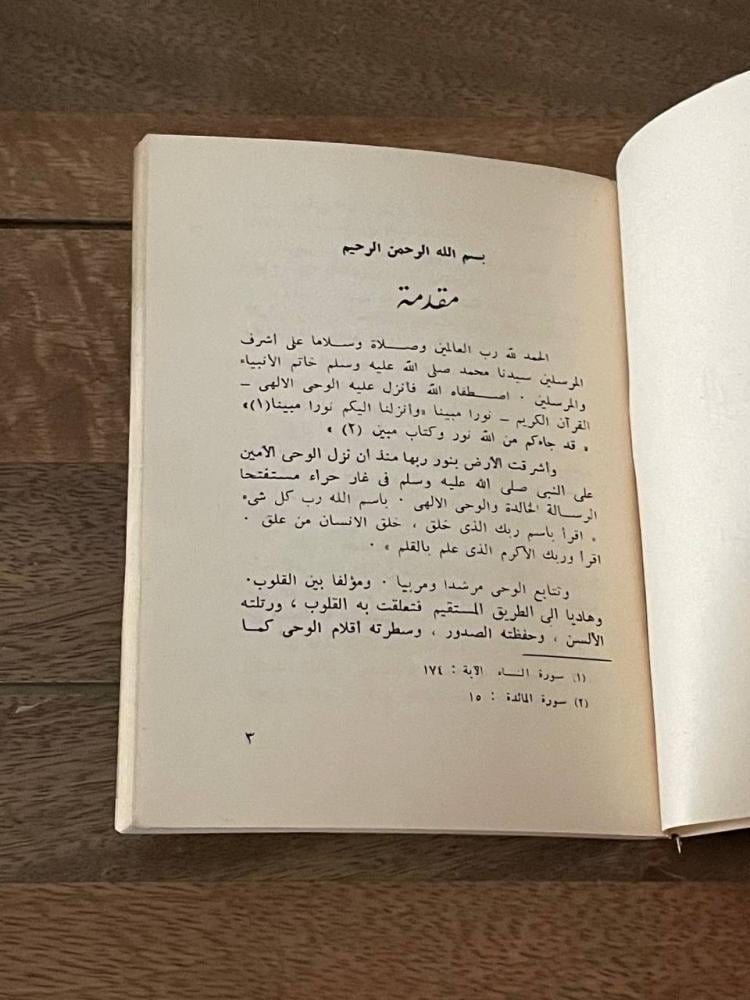 بسم الله الرحمن الرحيم
مقدمة
الحمد لله رب العالمين وصلاة وسلاما على اشرف
المرسلين سيدنا محمد صلى الله عليه وسلم خاتم الأنبياء
والمرسلين ٠ اصطفاه الله فانزل عليه الوحى الالهى –
القرآن الكريم – نورا مبينا «وانزلنا اليكم نورا مبينا(١)»
« قد جاءكم من الله نور وكتاب مبين (٢) »
واشرقت الأرض بنور ربها منذ ان نزل الوحى الأمين
على النبى صلى الله عليه وسلم فى غار حراء مستفتحا
الرسالة الخالدة والوحى الالهى ٠ باسم الله رب كل شىء
« اقرأ باسم ربك الذى خلق ، خلق الانسان من علق ٠
اقرأ وربك الأكرم الذى علم بالقلم » ٠
وتتابع الوحى مرشدا ومربيا ٠ ومؤلفا بين القلوب٠
وهاديا الى الطريق المستقيم فتعلقت به القلوب ، ورتلته
الألسن ، وحفظته الصدور ، وسطرته أقلام الوحى كما
(١) سورة النساء الآية : ١٧٤
(٢) سورة المائدة : ١٥
٣